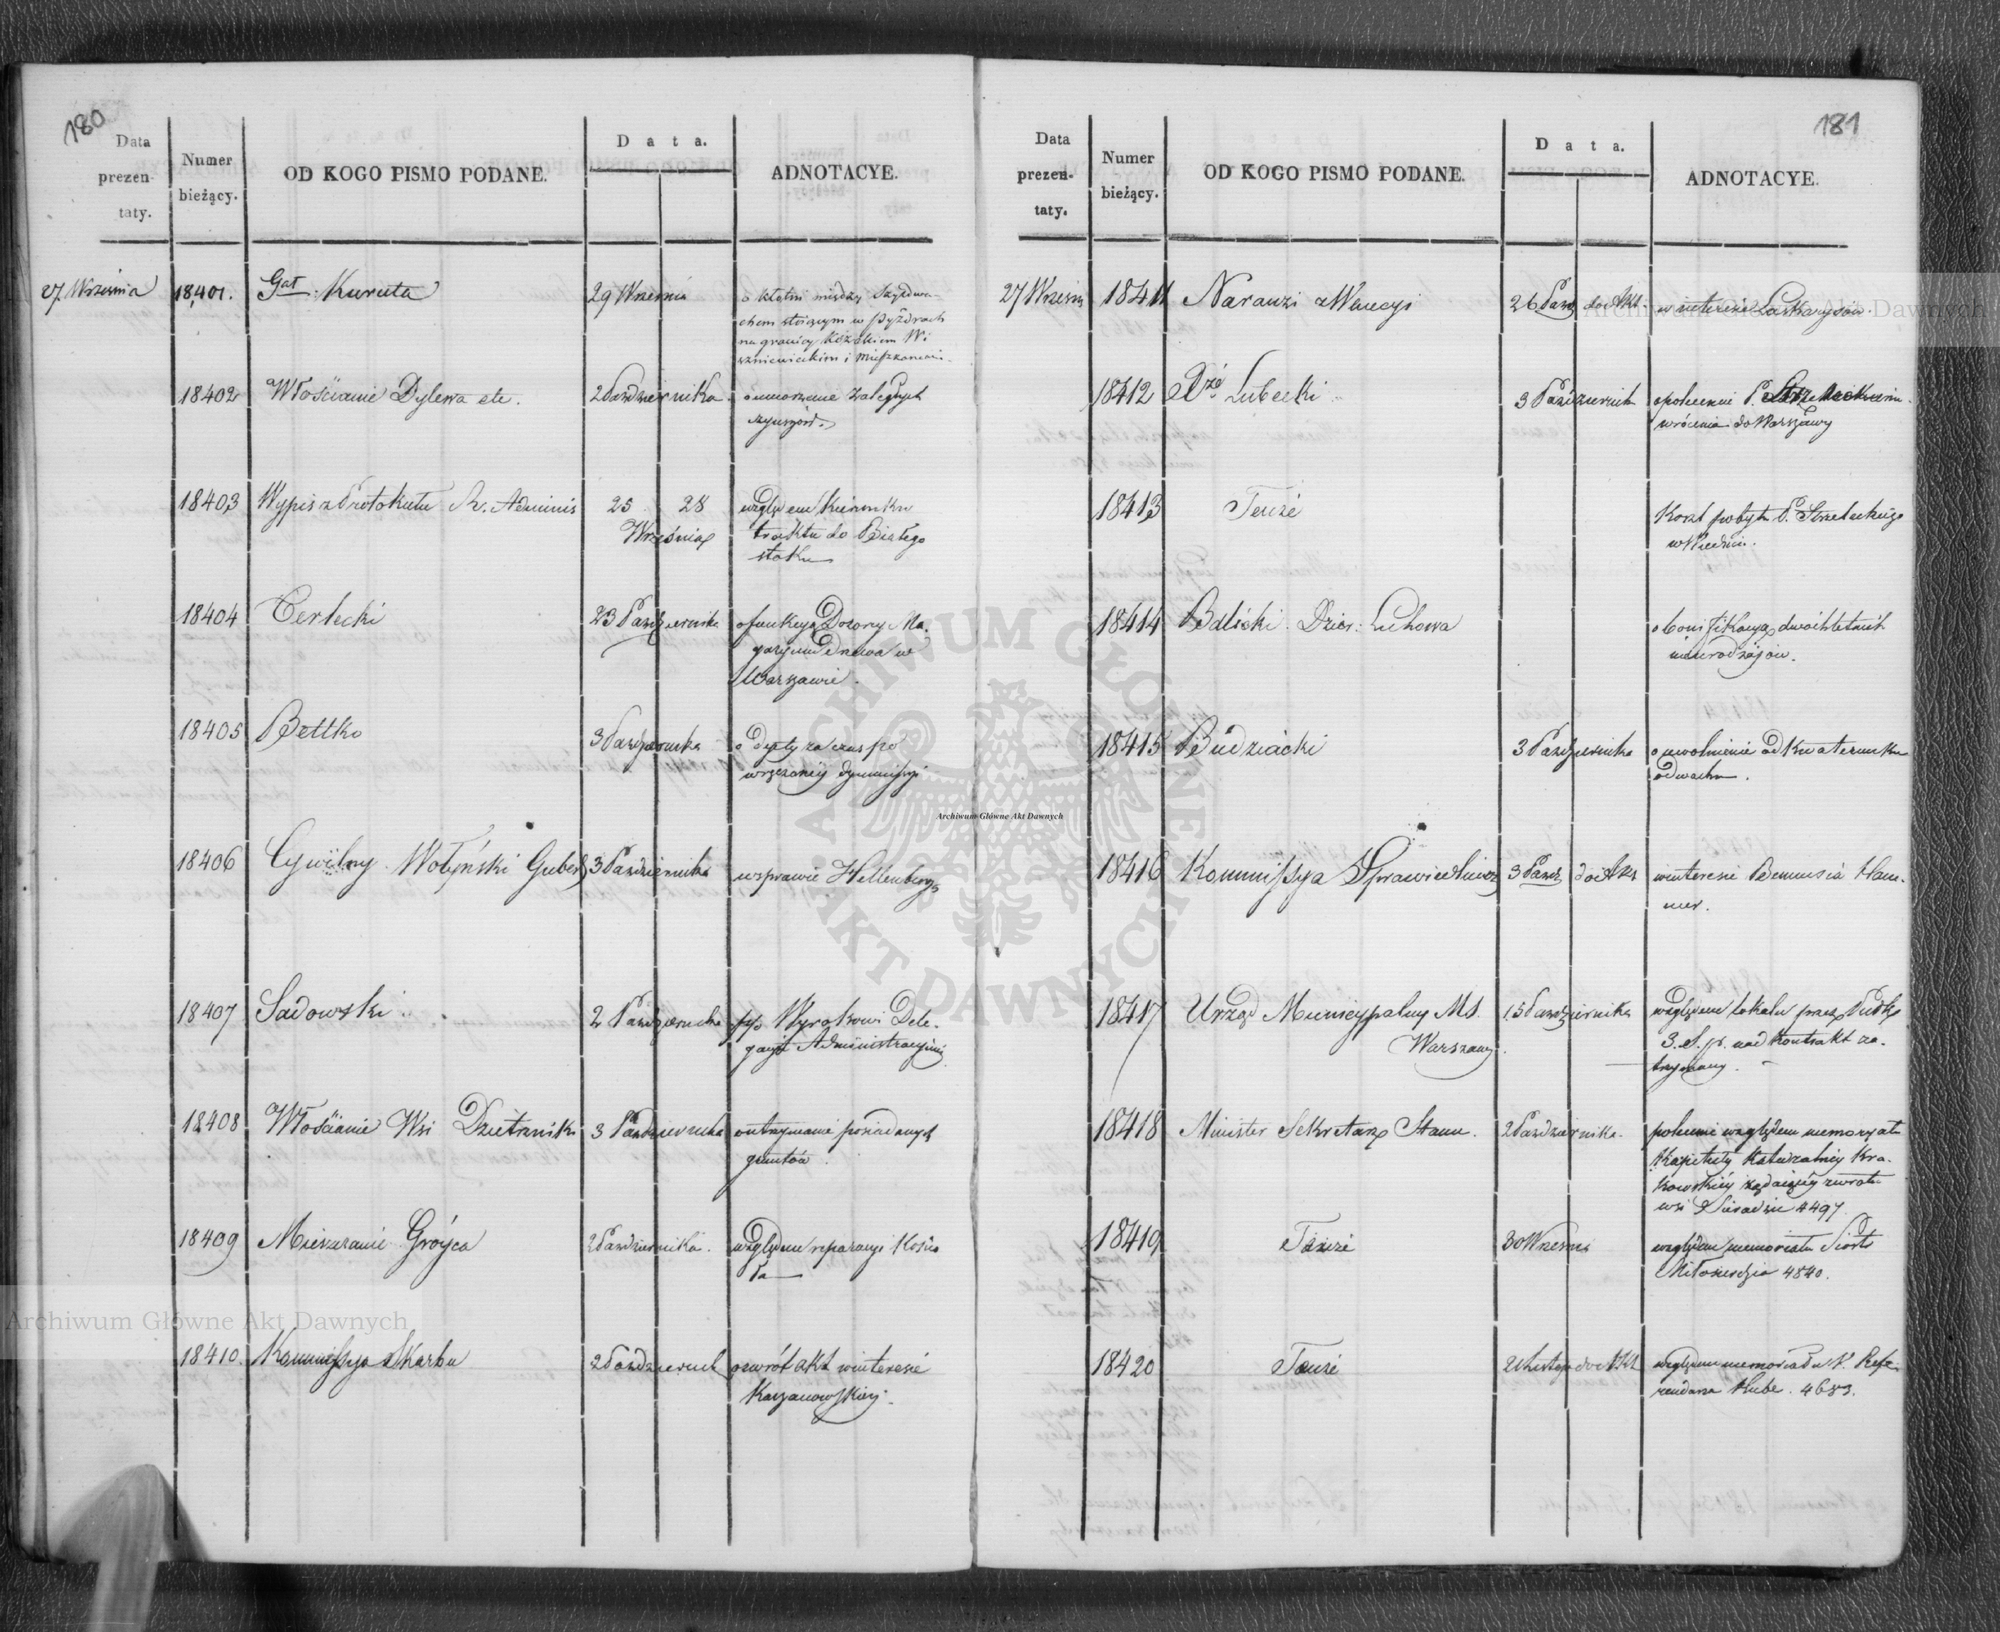 180
Data
prezen-
taty.
Numer
bieżący.
OD KOGO PISMO PODANE.
Data.
ADNOTACYE.
27 Września
18,401.
Gał. Kuruta
29 Września
o kłótni między
w Pyzdrach
na granicy
18402
Włościanie Dylewa etc.
2 Października
o umorzenie zaległych
czynszów.
18403
Wypis z Protokułu R. Adminis
25 28
Września
względem kierunku
traktu do Białego
stoku
18404
Terlecki
23 Października
o funkcyą Dozorcy Ma-
gazynu Drzewa w
Warszawie.
18405
Bettko
3 Października
o dyety za czas po
wyrzeczonéy dymmissyi
18406
Cywilny Wołyński Guber
3 Października
w sprawie Hellenberga
18407
Sadowski
2 Października
Wyrokowi Dele-
gacyi Administracyinéy
18408
Włościanie Wsi
3 Października
o utrzymanie posiadanych
gruntów.
18409
Mieszczanie Gróyca
2 Października.
względem reparacyi Kościo
ła
18410.
Kommissya Skarbu
2 Październik
o zwrót akt w interesie
Karzanowskiéy.
181
Data
prezen-
taty.
Numer
bieżący.
OD KOGO PISMO PODANE.
Data.
ADNOTACYE.
27 Wrześn
18411
Naranzi z Wenecyi
26 Paźd do Akt.
w interesie Laskarysów.
18412
Xżę Lubecki
3 Październik
o poleceniu P. Strzeleckiemu
wrócenia do Warszawy
18413
Tenże
Koszt pobytu P. Strzeleckiego
w Wiedniu.
18414
Balicki Dzier: Łukowa
o bonifikacyą dwóchletnich
nieurodzajów.
18415
Budziacki
3 Października
o uwolnienie od kwaterunku
odwachu.
18416
Kommissya Sprawiedliwoś
3 Paźd. do Akt
w interesie Ham-
mer.
18417
Urząd Municypalny M S.
Warszawy.
15 Października
względem lokalu przez Pułk
3. S. p. nad kontrakt za-
trzymany.
18418
Minister Sekretarz Stanu.
2 Października.
polecenie względem memoryału
Kapituły Katedralnéy Kra-
kowskiéy żądaiącéy zwrotu
wsi Sieradzie 4497.
18419
Tenże
30 Wrześnis
względem memoriału Siostr
Miłosierdzia 4840.
18420
Tenże
2 Listop do Akt
względem memoriału P. Refe-
rendarza Hube. 4683.
Archiwum Główne Akt Dawnych
Archiwum Główne Akt Dawnych
Archiwum Główne Akt Dawnych
ARCHIWUM GŁÓWNE
AKT DAWNYCH